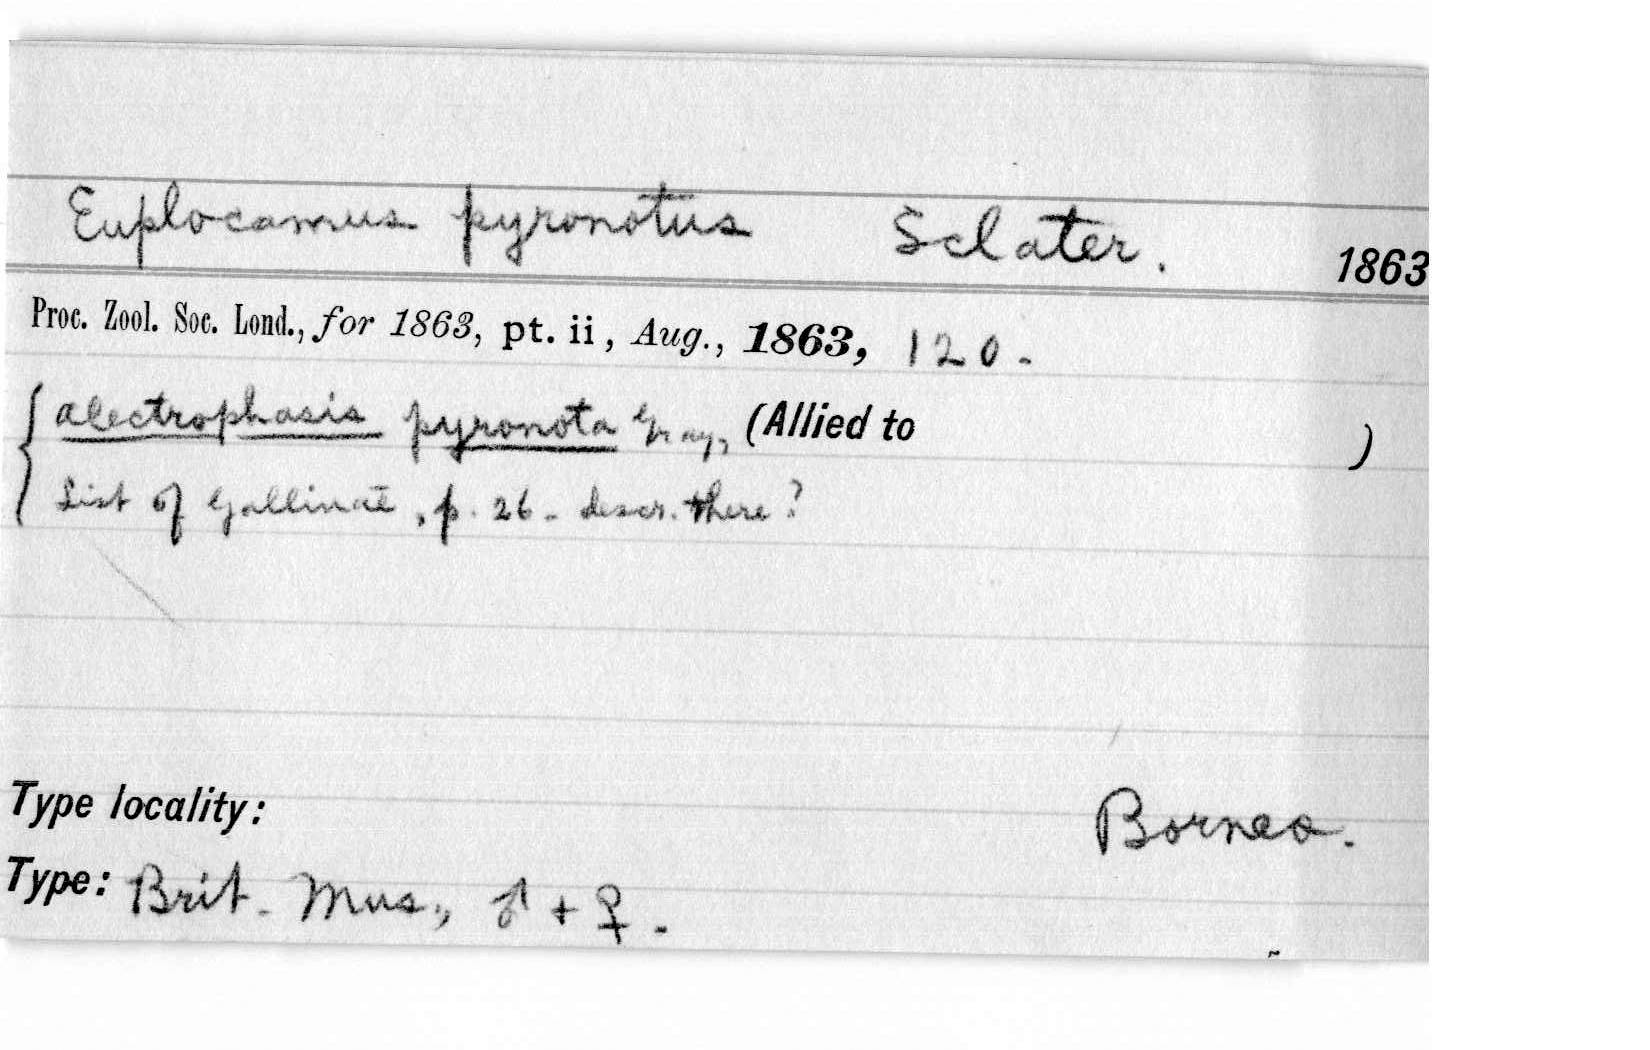 Euplocamus pyronotus Sclater. 1863
Proc. Zool. Soc. Lond., for 1863, pt. ii, Aug., 1863, 120.
Alectrophasis pyronota Gray, (Allied to )
List of Gallinae, p. 26 - descr. there?
Type locality: Borneo.
Type: Brit. Mus., ♂ + ♀.